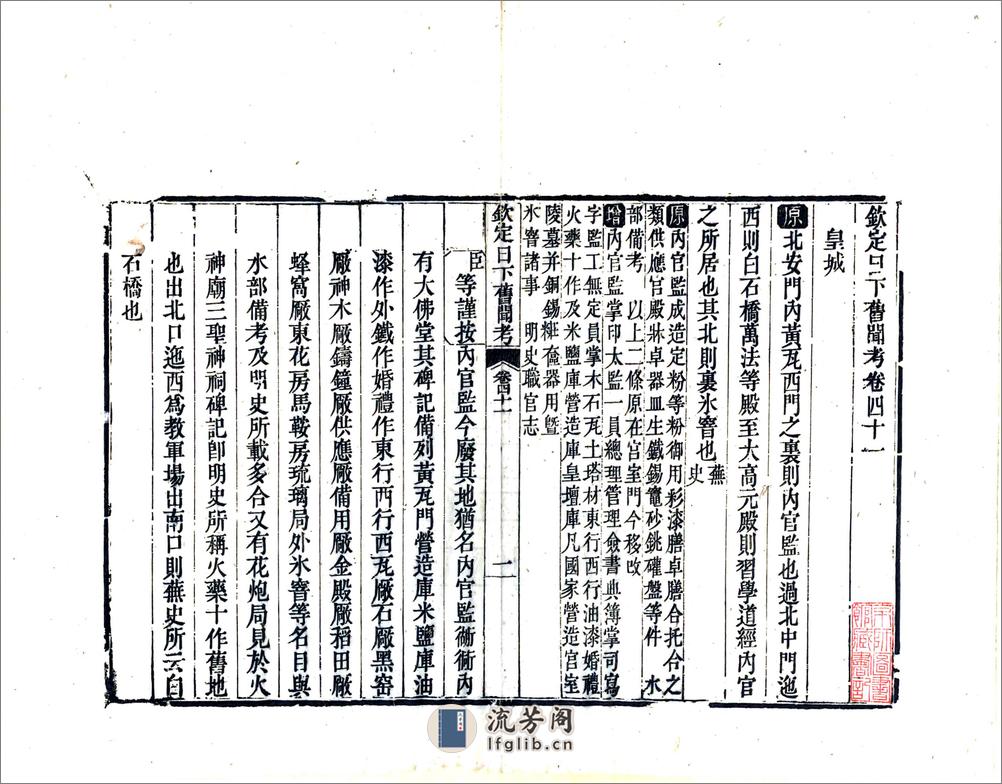 欽定日下舊聞考卷四十一
皇城
原北安門內黃瓦西門之裏則內官監也過北中門迤
西則白石橋萬法等殿至大高元殿則習學道經內官
之所居也其北則裏氷窨也蕪史
原內官監成造定粉等粉御用彩漆膳卓膳合托合之
類供應官殿牀卓器皿生鐵錫竈砂銚磪盤等件 水
部備考 以上二條原在官室門今移改
增內官監掌印太監一員總理管理僉書典簿掌司寫
字監工無定員掌木石瓦土塔材東行西行油漆婚禮
火藥十作及米鹽庫營造庫皇壇庫凡國家營造宮室
陵墓并銅錫糚奩器用曁
氷窨諸事 明史職官志
欽定日下舊聞考 卷四十一 一
臣等謹按內官監今廢其地猶名內官監衚衕內
有大佛堂其碑記備列黃瓦門營造庫米鹽庫油
漆作外鐵作婚禮作東行西行西瓦厰石厰黑窑
厰神木厰鑄鐘厰供應厰備用厰金殿厰稻田厰
蜂窩厰東花房馬鞍房琉璃局外氷窨等名目與
水部備考及明史所載多合又有花炮局見於火
神廟三聖神祠碑記卽明史所稱火藥十作舊地
也出北口迤西爲教軍場出南口則蕪史所云白
石橋也
流芳阁
lfglib.cn